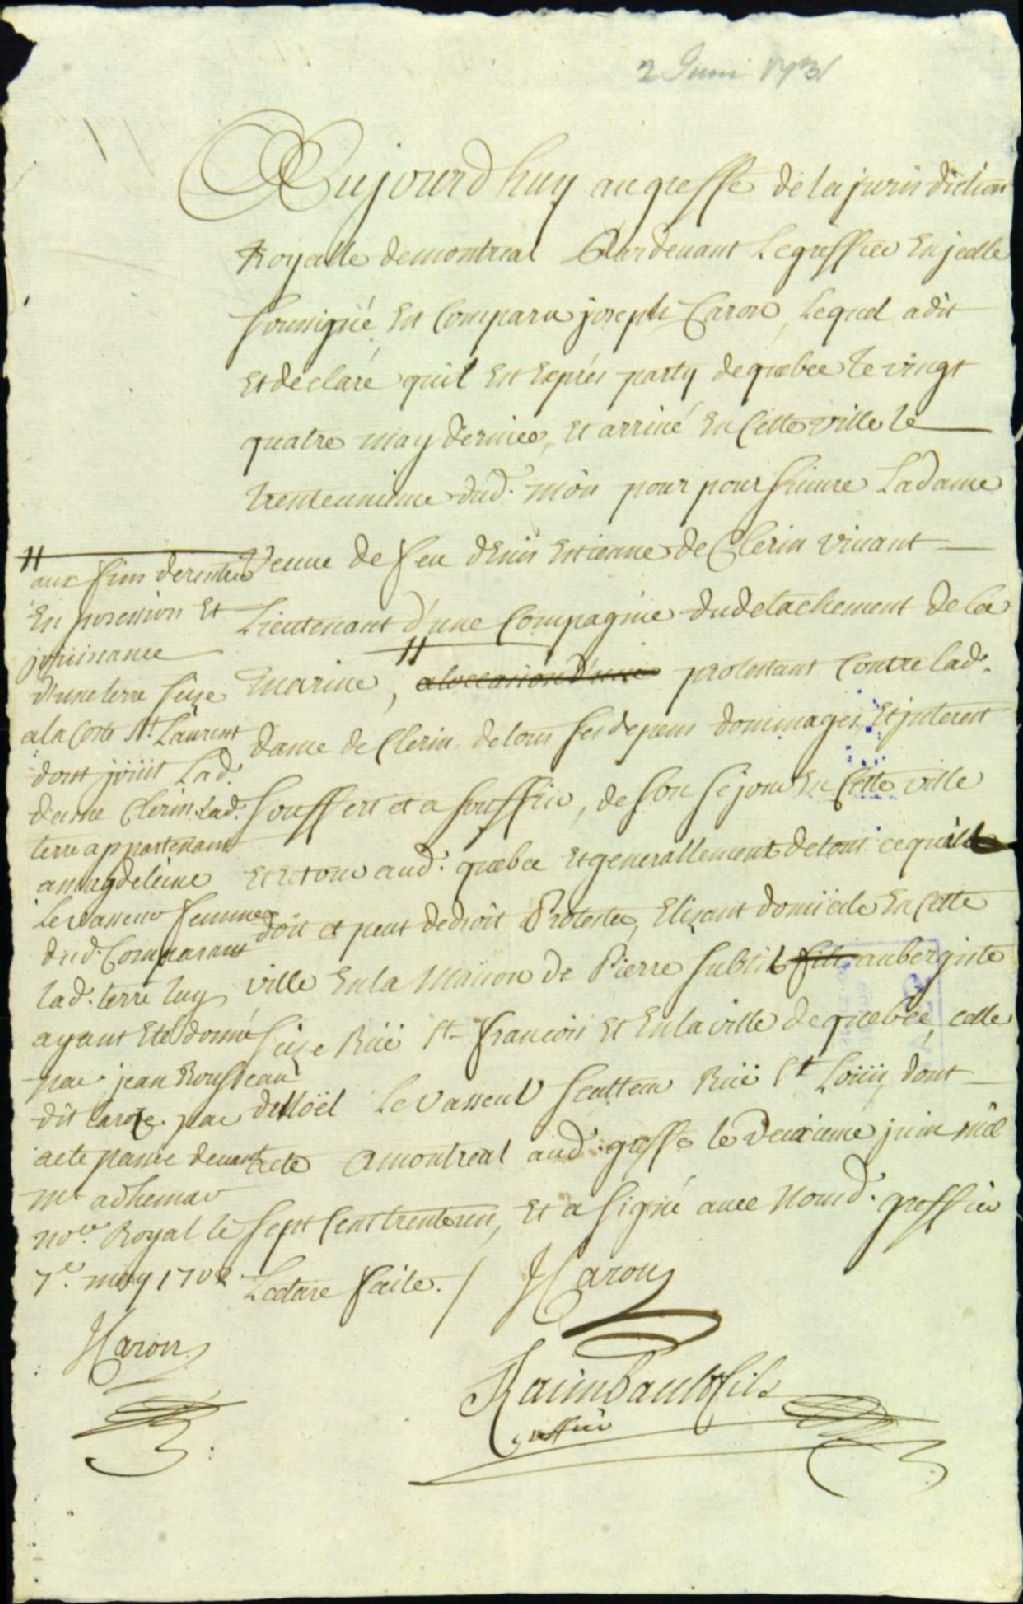 2 Juin 1731
Aujourdhuy au greffe de la jurisdiction
Royalle de montreal Pardevant Le greffier En jcelle
soussigné Est Comparu joseph Caron, Lequel a dit
Et déclaré quil Est Exprés party de quebec le vingt
quatre may dernier, Et arrivé En Cette ville le
trenteunieme dud. mois pour poursuivre La dame
Veuve de feu denis Estienne de Clerin vivant
Lieutenant d'une Compagnie du detachement de la
marine, // a loccasion d'une protestant Contre lad.
dame de Clerin de tous ses depens dommages Et jnterest
souffert et a souffrir, de son sejour En Cette ville
Et retour aud. quebec Et generallement de tout ce quil
doit et peut de droit Protester, Elisant domicile En Cette
ville En la Maison de Pierre sublil fils aubergiste
size Rüe St. francois Et En la ville de quebec, celle
de Noël Levasseur sculteur Rüe St Loüis, dont
acte a montreal aud. greffe le deuxieme juin mil
sept Cent trente un, Et a signé avec Nousd. greffier
Lecture faite. /
JCaron
Raimbault fils
greffier
// aux fins de rentrer
En possession Et
joüissance
d'une terre size
a la Coste St. Laurent
dont joüit Lad.
dame Clerin Lad.
terre appartenant
a magdeleine
Levasseur femme
dud. Comparant
lad. terre luy
ayant Eté donné
par jean Rousseau
dit Laroze. par
acte passée devant
Me adhemar
nore. Royal le
7e. may 1702
JCaron